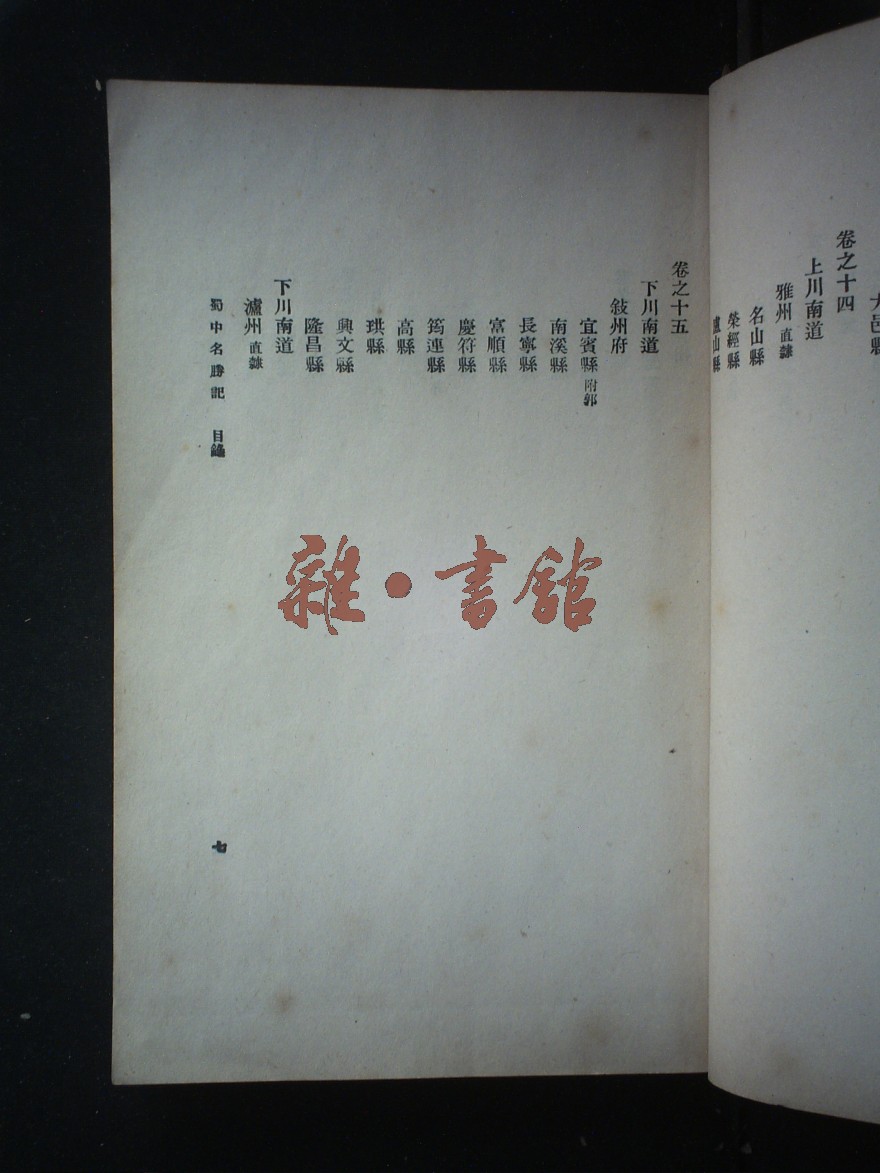 大邑縣
卷之十四
上川南道
雅州 直隸
名山縣
榮經縣
蘆山縣
卷之十五
下川南道
敍州府
宜賓縣 附郭
南溪縣
長寧縣
富順縣
慶符縣
筠連縣
高縣
珙縣
興文縣
隆昌縣
下川南道
瀘州 直隸
蜀中名勝記 目錄
七
雜·書館